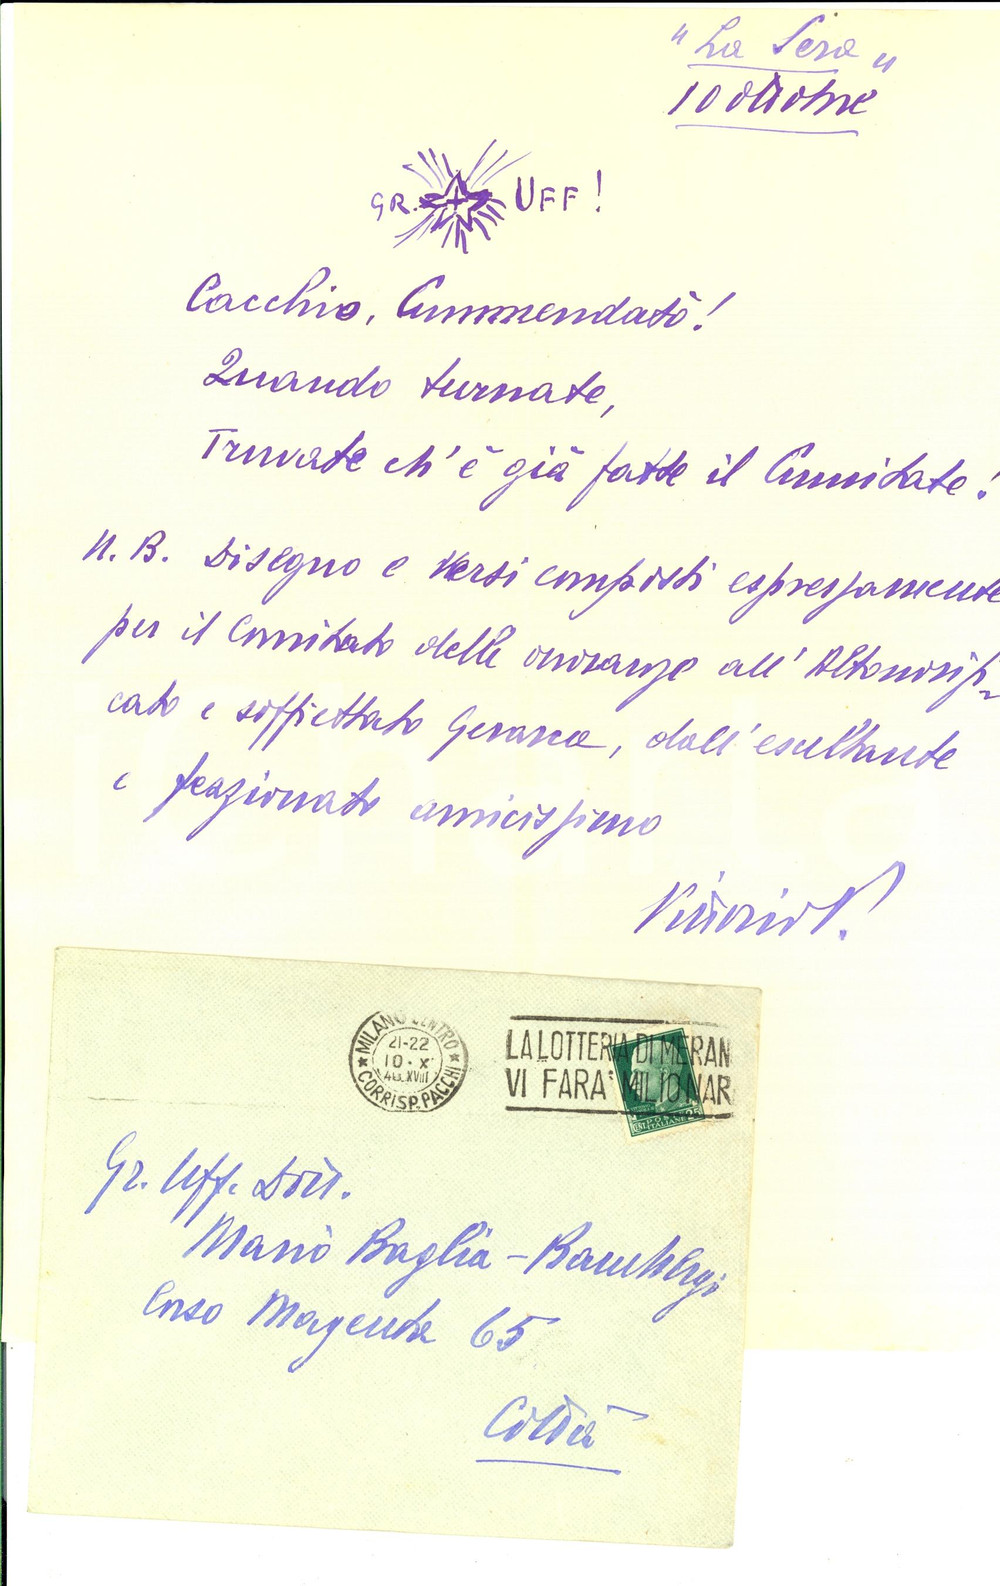 "La Sera"
10 ottobre
GR. UFF!
Cacchio, Cummendatò!
Quando turnate,
Truvate ch'è già fatte il Cumitate!
N.B. Disegno e versi composti espressamente
per il Comitato delle onoranze all'
cato e soffiettato Gerarca, dall'esultante
e amicissimo
Vittorio
MILANO CENTRO
21-22
10·X
40.XVIII
CORRISP. PACCHI
LA LOTTERIA DI MERAN
VI FARA' MILIONAR
POSTE ITALIANE 25
Gr. Uff. Dott.
Mario Baglia-Bambergi
Corso Magenta 65
Città